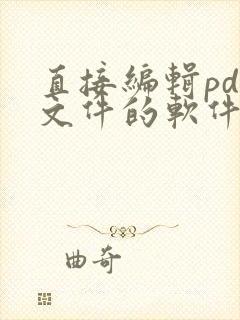 直接編輯pd
文件的軟件
曲奇